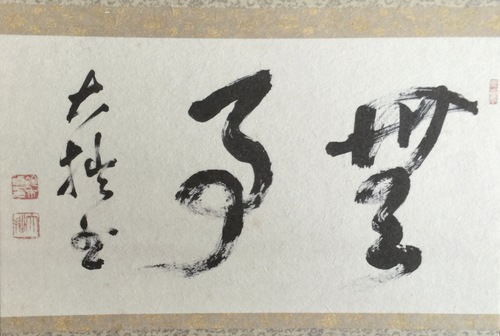 無事
大拙書